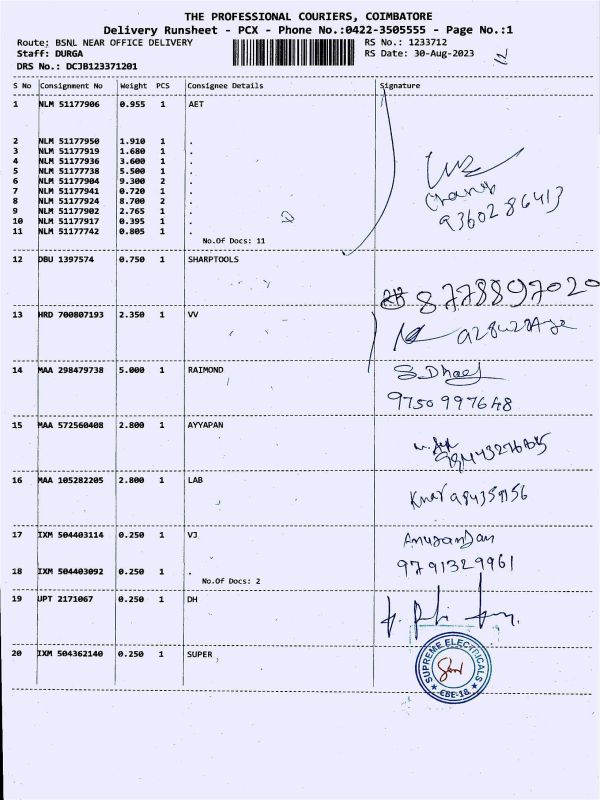 THE PROFESSIONAL COURIERS, COIMBATORE
Delivery Runsheet - PCX - Phone No.:0422-3505555 - Page No.:1
Route; BSNL NEAR OFFICE DELIVERY RS No.: 1233712
Staff: DURGA RS Date: 30-Aug-2023
DRS No.: DCJB123371201
S No Consignment No Weight PCS Consignee Details Signature
1 NLM 51177906 0.955 1 AET
2 NLM 51177950 1.910 1 .
3 NLM 51177919 1.680 1 .
4 NLM 51177936 3.600 1 .
5 NLM 51177738 5.500 1 .
6 NLM 51177904 9.300 2 .
7 NLM 51177941 0.720 1 .
8 NLM 51177924 8.700 2 .
9 NLM 51177902 2.765 1 .
10 NLM 51177917 0.395 1 .
11 NLM 51177742 0.805 1 .
9360286413
No.Of Docs: 11
12 DBU 1397574 0.750 1 SHARPTOOLS
8778897020
13 HRD 700807193 2.350 1 VV
14 MAA 298479738 5.000 1 RAIMOND
9750997648
15 MAA 572560408 2.800 1 AYYAPAN
16 MAA 105282205 2.800 1 LAB
17 IXM 504403114 0.250 1 VJ
9791329961
18 IXM 504403092 0.250 1 .
No.Of Docs: 2
19 UPT 2171067 0.250 1 DH
20 IXM 504362140 0.250 1 SUPER
SUPREME ELECTRICALS
CBE-18